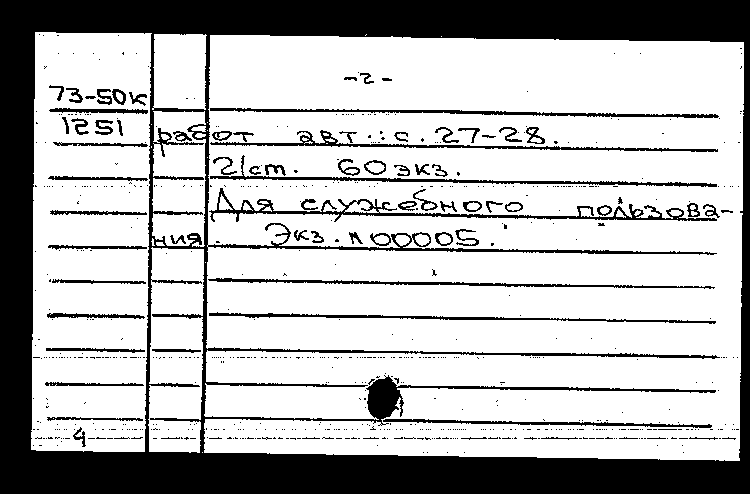 -2-
73-50к
1251 работ авт.: с. 27-28.
2/ст. 60 экз.
Для служебного пользова-
ния. Экз. №00005.
4